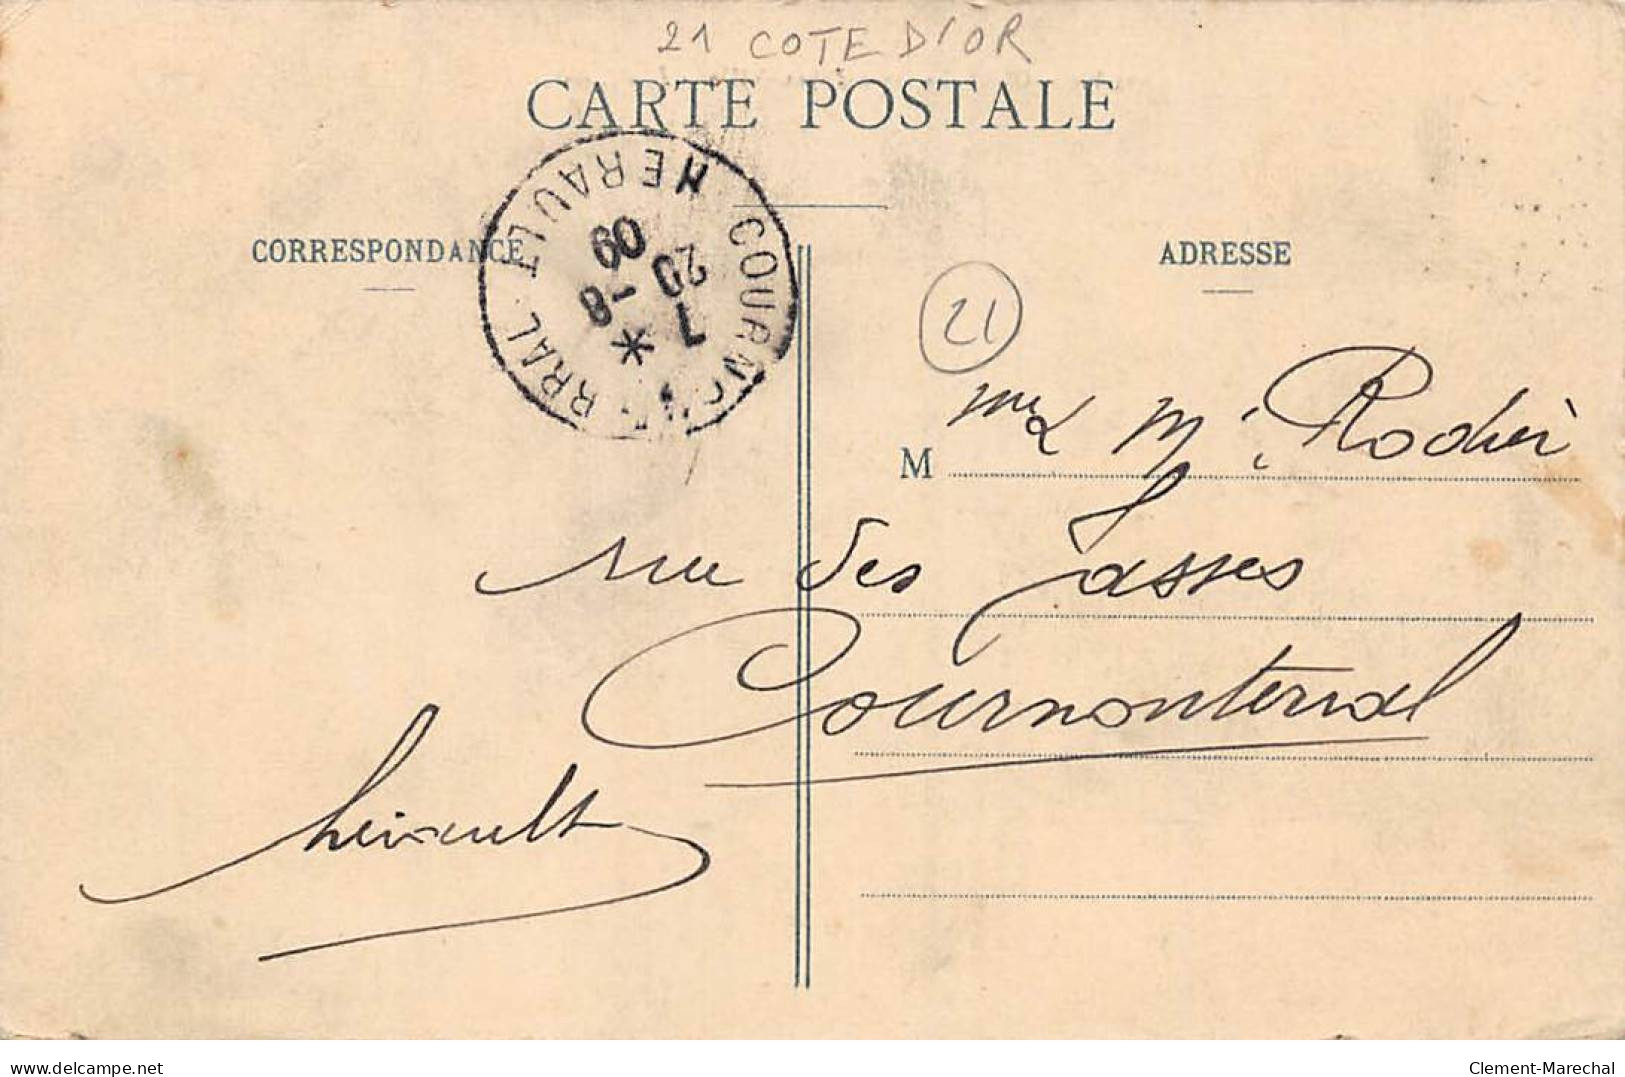 21 COTE D'OR
CARTE POSTALE
HERAULT
COURNON RRAL
7
20 - 8
09
*
CORRESPONDANCE
ADRESSE
21
M
Mme & M. Rodier
rue des Jasses
Cournonterral
hérault
delcampe.net
Clement-Marechal